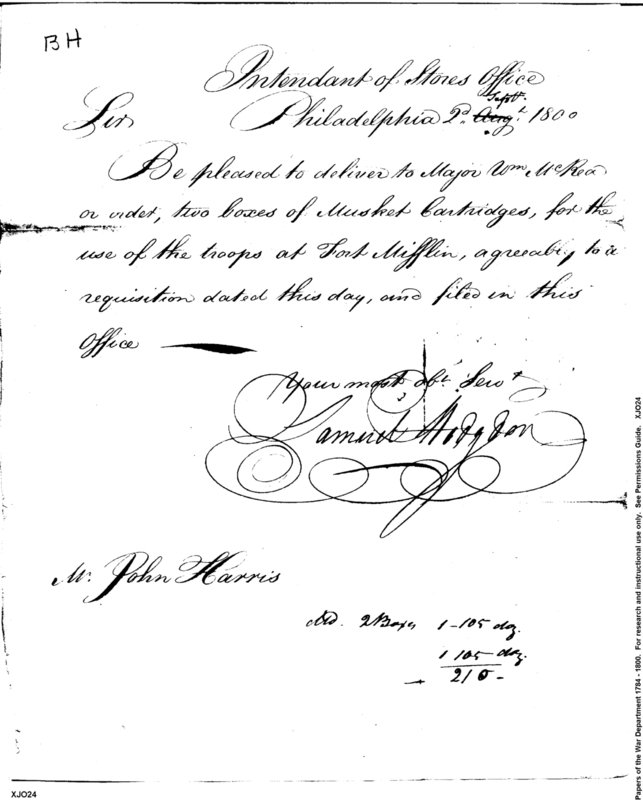 BH
Intendant of Stores Office
Sept.
Sir Philadelphia 2d. Augt. 1800
Be pleased to deliver to Major Wm McRea
or order, two boxes of Musket Cartridges, for the
use of the troops at Fort Mifflin, agreeably to a
requisition dated this day, and filed in this
Office
Your most obt. Servt
Samuel Hodgdon
Mr. John Harris
2 Boxes 1 - 105 doz.
1 105 doz.
210 -
Papers of the War Department 1784 - 1800. For research and instructional use only. See Permissions Guide. XJO24
XJO24